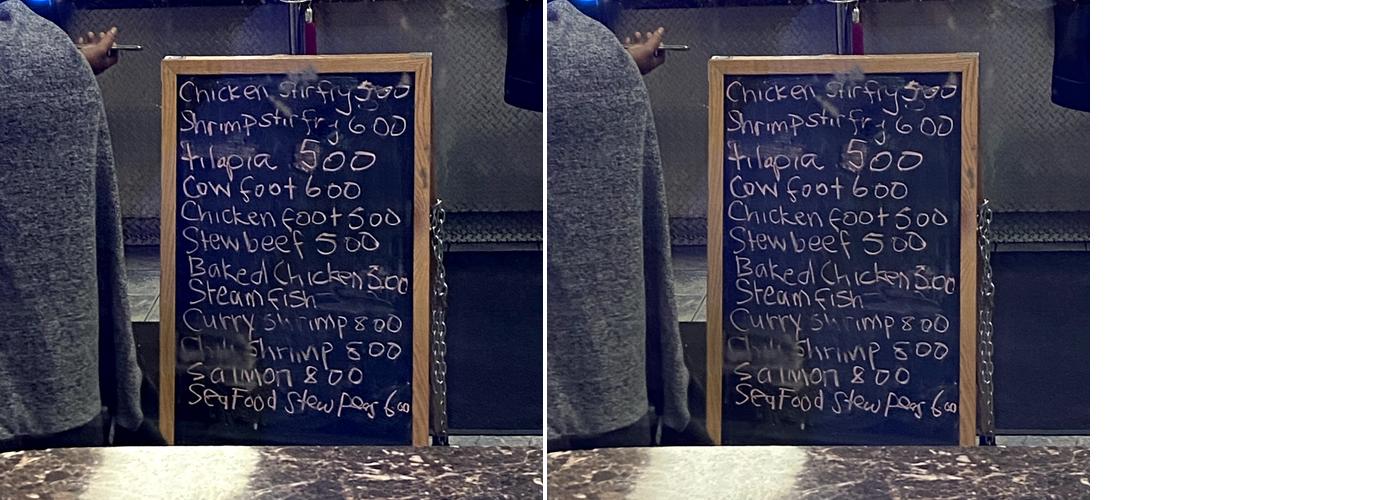 Chicken stirfry 500
Shrimp stirfry 600
tilapia 500
Cow foot 600
Chicken foot 500
Stew beef 500
Baked Chicken 500
Steam fish
Curry shrimp 800
Shrimp 800
Salmon 800
SeaFood Stew peas 600
Chicken stirfry 500
Shrimp stirfry 600
tilapia 500
Cow foot 600
Chicken foot 500
Stew beef 500
Baked Chicken 500
Steam fish
Curry shrimp 800
Shrimp 800
Salmon 800
SeaFood Stew peas 600